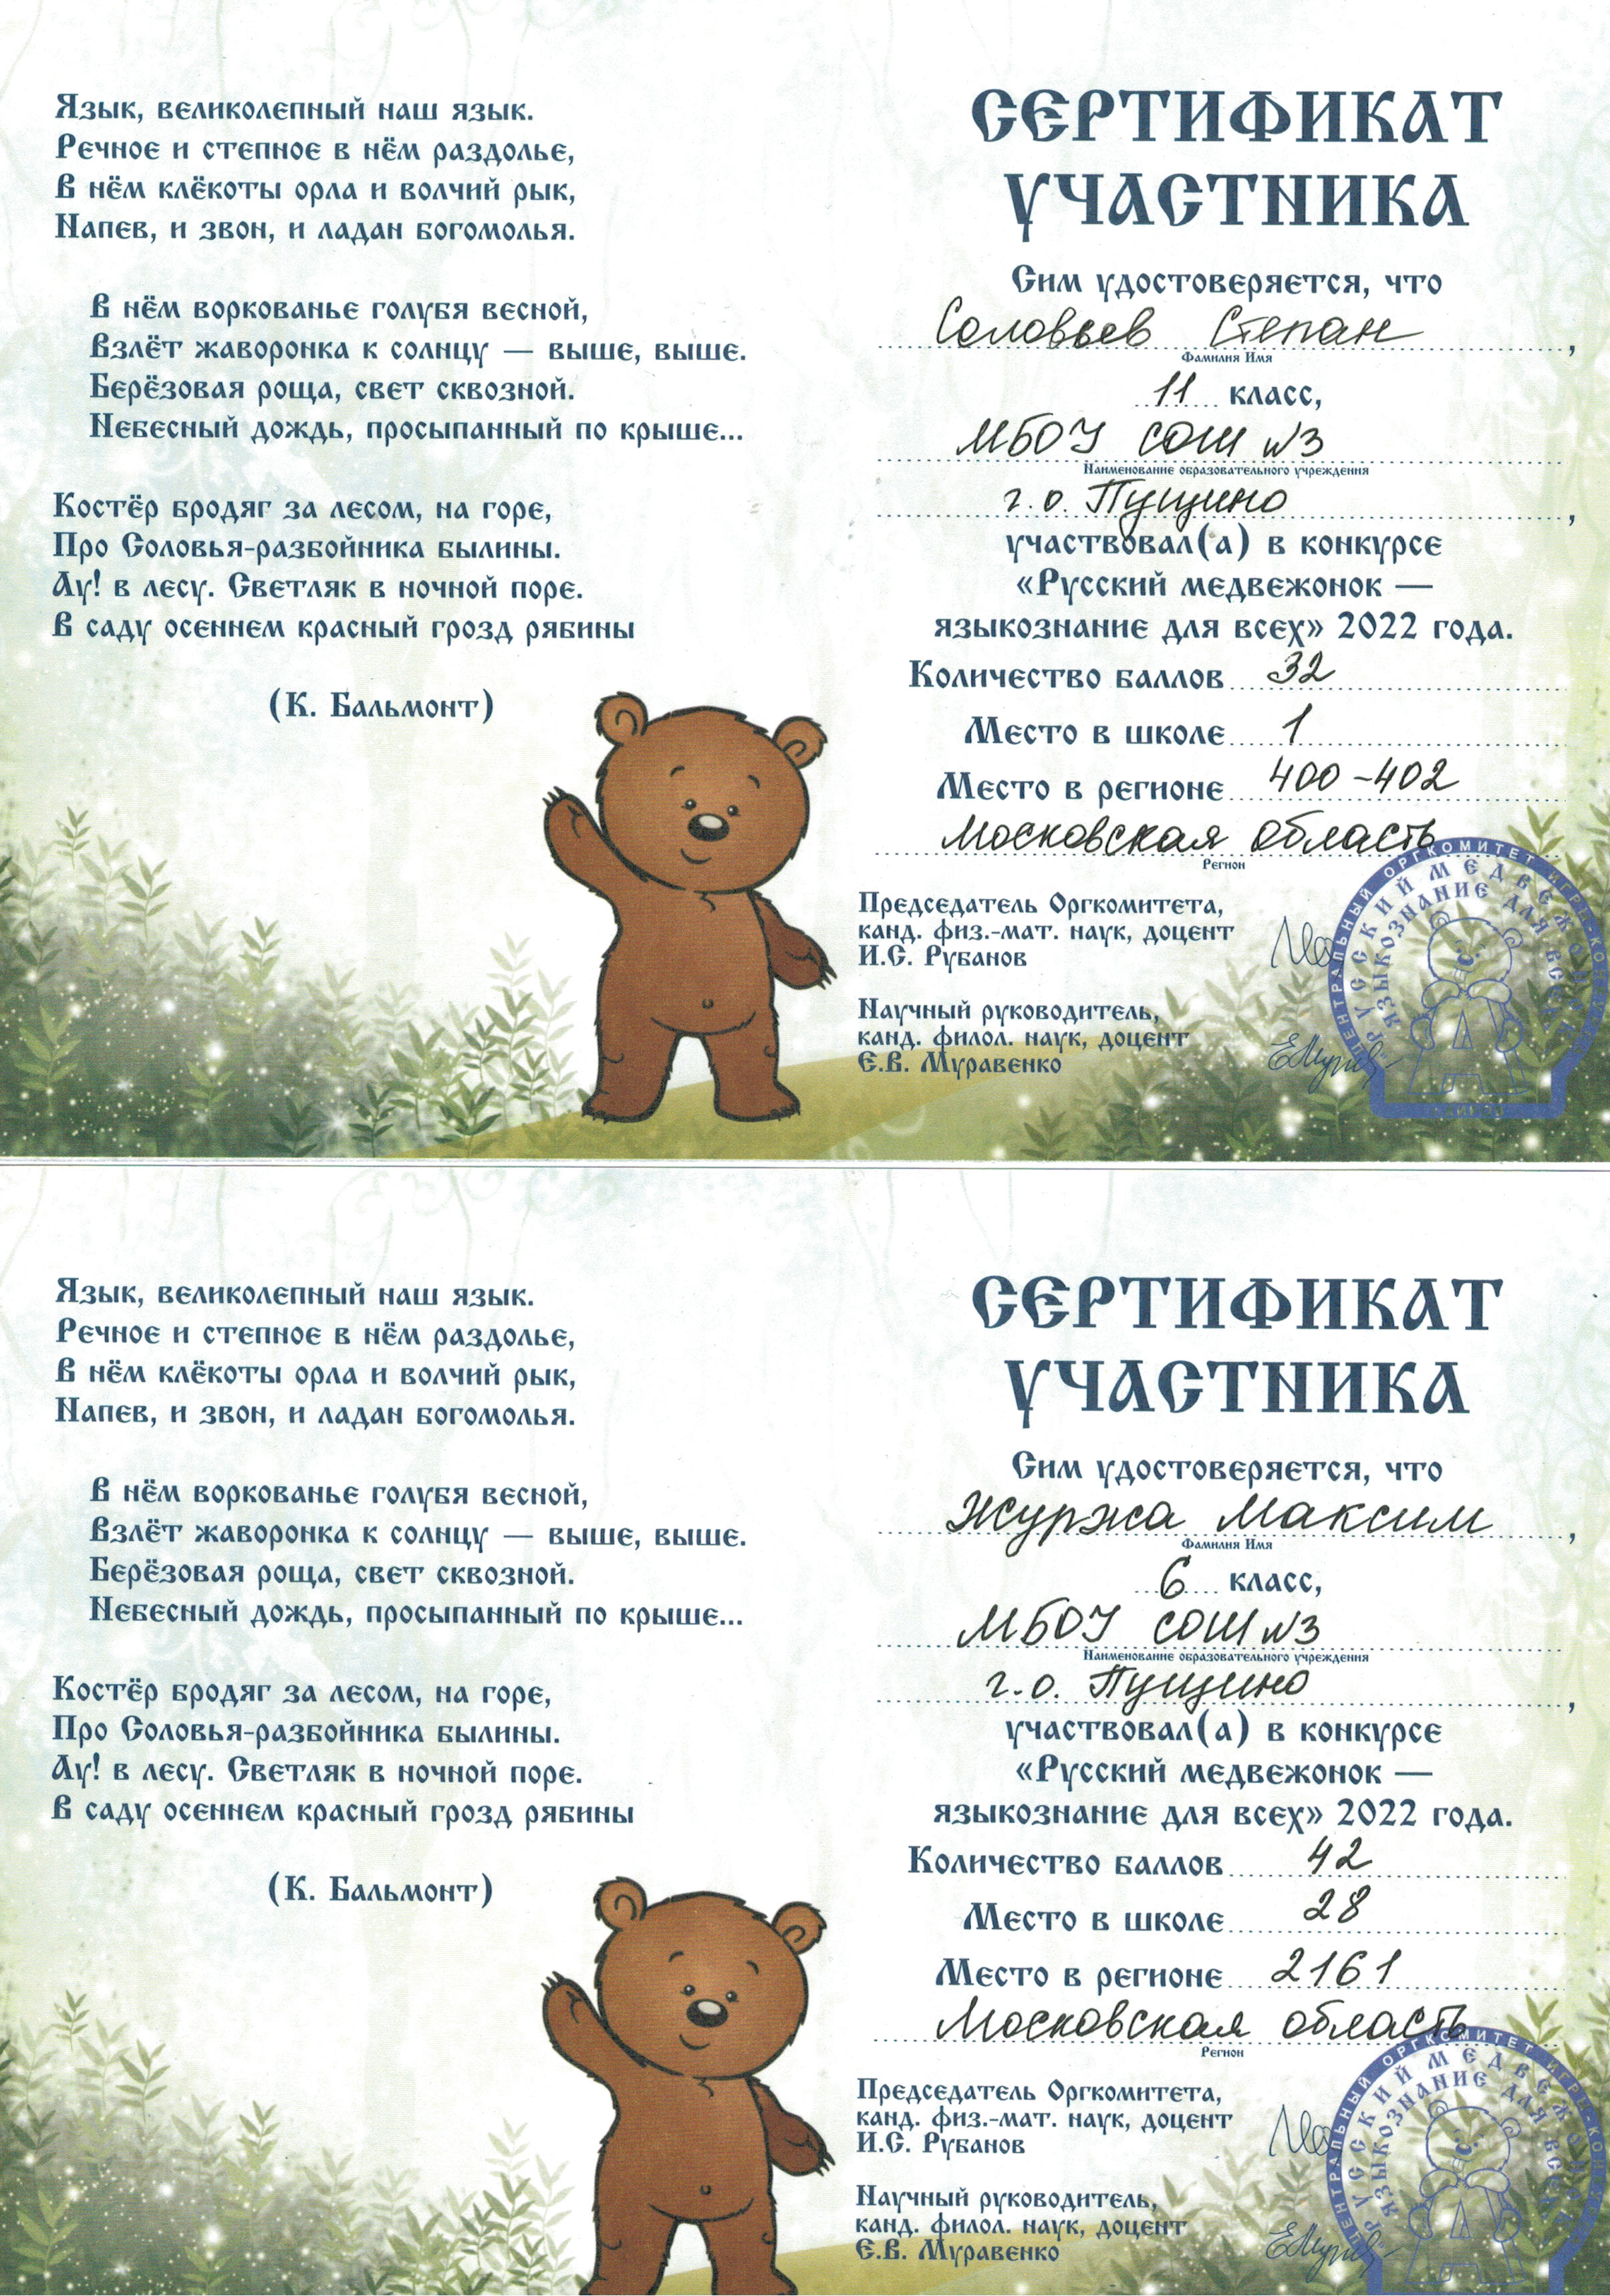 Язык, великолепный наш язык.
Речное и степное в нём раздолье,
В нём клёкоты орла и волчий рык,
Напев, и звон, и ладан богомолья.
В нём воркованье голубя весной,
Взлёт жаворонка к солнцу — выше, выше.
Берёзовая роща, свет сквозной.
Небесный дождь, просыпанный по крыше...
Костёр бродяг за лесом, на горе,
Про Соловья-разбойника былины.
Ау! в лесу. Светляк в ночной поре.
В саду осеннем красный грозд рябины
(К. Бальмонт)
СЕРТИФИКАТ
УЧАСТНИКА
Сим удостоверяется, что
Соловьев Степан,
Фамилия Имя
11 класс,
МБОУ СОШ №3
Наименование образовательного учреждения
г.о. Пущино,
участвовал(а) в конкурсе
«Русский медвежонок —
языкознание для всех» 2022 года.
Количество баллов 32
Место в школе 1
Место в регионе 400-402
Московская область
Регион
Председатель Оргкомитета,
канд. физ.-мат. наук, доцент
И.С. Рубанов
Научный руководитель,
канд. филол. наук, доцент
Е.В. Муравенко
ЦЕНТРАЛЬНЫЙ ОРГКОМИТЕТ ИГРЫ-КО
РУССКИЙ МЕДВЕЖОНОК
ЯЗЫКОЗНАНИЕ ДЛЯ ВСЕХ
Язык, великолепный наш язык.
Речное и степное в нём раздолье,
В нём клёкоты орла и волчий рык,
Напев, и звон, и ладан богомолья.
В нём воркованье голубя весной,
Взлёт жаворонка к солнцу — выше, выше.
Берёзовая роща, свет сквозной.
Небесный дождь, просыпанный по крыше...
Костёр бродяг за лесом, на горе,
Про Соловья-разбойника былины.
Ау! в лесу. Светляк в ночной поре.
В саду осеннем красный грозд рябины
(К. Бальмонт)
СЕРТИФИКАТ
УЧАСТНИКА
Сим удостоверяется, что
Журжа Максим,
Фамилия Имя
6 класс,
МБОУ СОШ №3
Наименование образовательного учреждения
г.о. Пущино,
участвовал(а) в конкурсе
«Русский медвежонок —
языкознание для всех» 2022 года.
Количество баллов 42
Место в школе 28
Место в регионе 2161
Московская область
Регион
Председатель Оргкомитета,
канд. физ.-мат. наук, доцент
И.С. Рубанов
Научный руководитель,
канд. филол. наук, доцент
Е.В. Муравенко
ЦЕНТРАЛЬНЫЙ ОРГКОМИТЕТ ИГРЫ-КО
РУССКИЙ МЕДВЕЖОНОК
ЯЗЫКОЗНАНИЕ ДЛЯ ВСЕХ